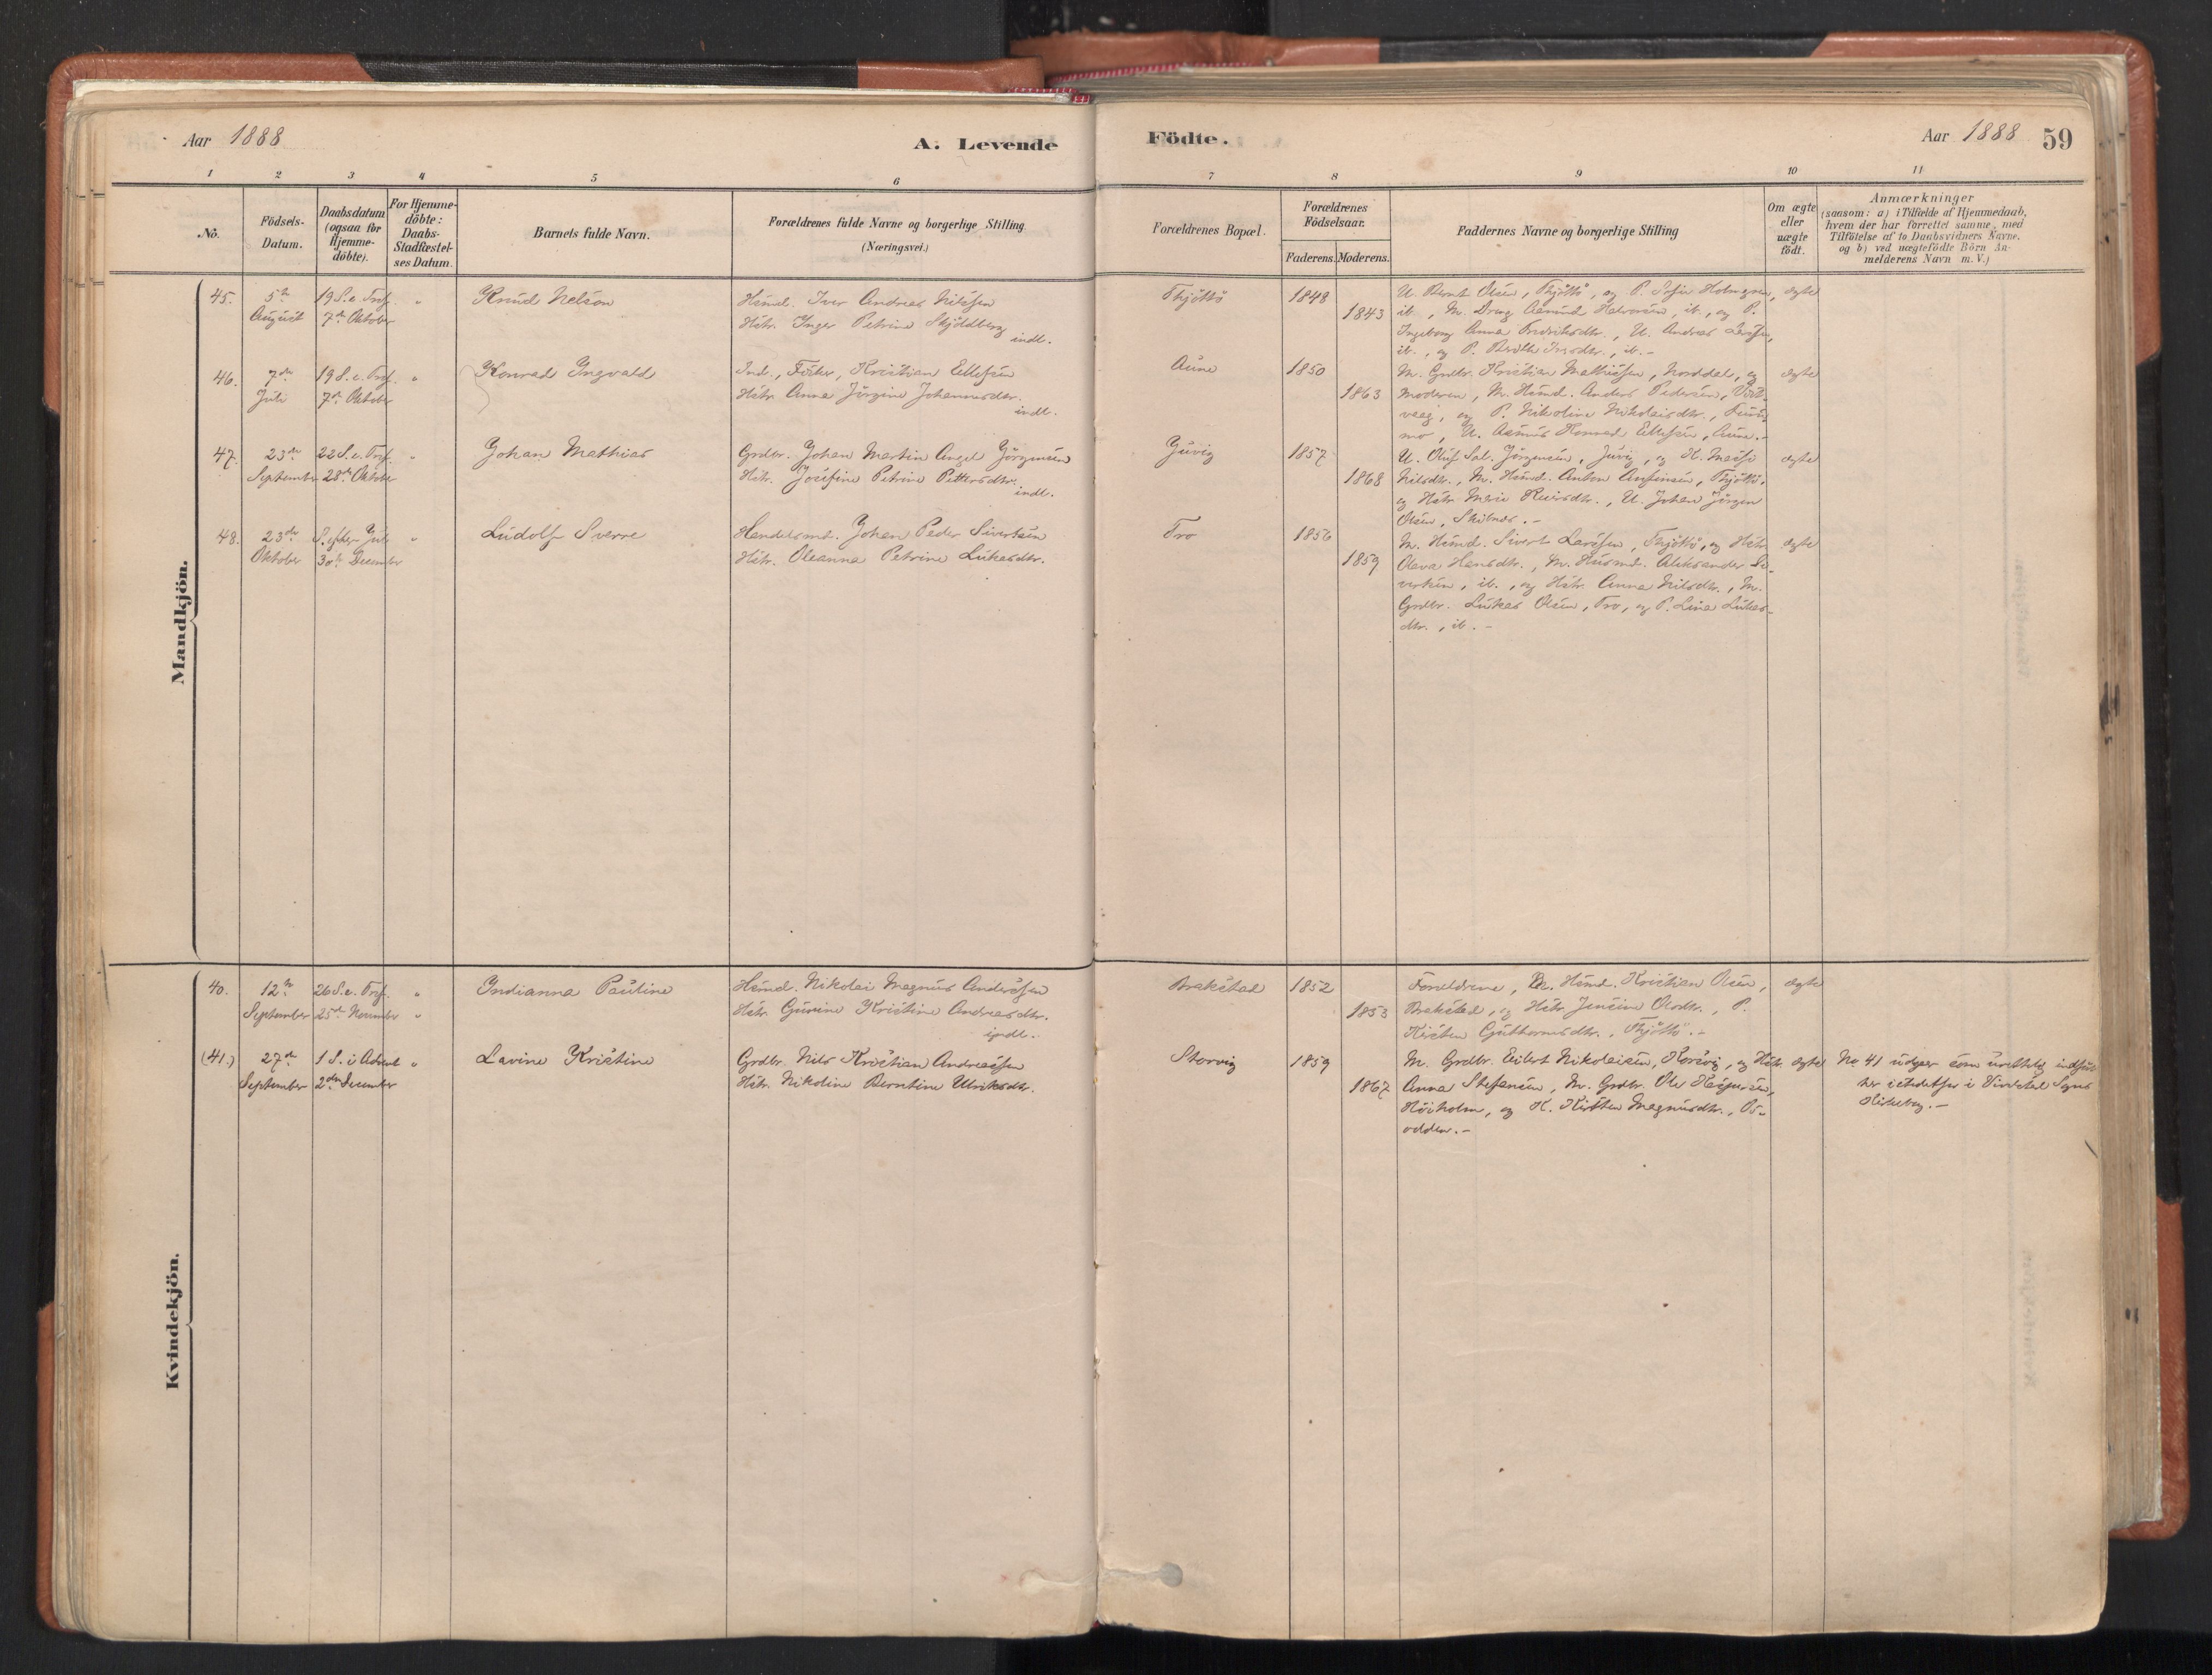 Aar 1888
A. Levende
Födte.
Aar 1888
59
1 2 3 4 5 6 7 8 9 10 11
No.
Födsels-
Datum.
Daabsdatum
(ogsaa for
Hjemme-
döbte).
For Hjemme-
döbte:
Daabs-
Stadfæstel-
ses Datum.
Barnets fulde Navn.
Forældrenes fulde Navne og borgerlige Stilling
(Næringsvei.)
Forældrenes Bopæl.
Forældrenes
Födselsaar.
Faderens. Moderens.
Faddernes Navne og borgerlige Stilling
Om ægte
eller
uægte
födt.
Anmærkninger
(saasom: a) i Tilfælde af Hjemmedaab,
hvem der har forrettet samme, med
Tilföielse af to Daabsvidners Navne,
og b) ved uægtefödte Börn An-
melderens Navn m. V.)
Mandkjön.
45.
5te
August
19 S. e. Tref.
7de Oktober
"
Knud Nelson
Hsmd. Iver Andreas Nilssen
Hstr. Inger Petrine Skjoldberg
indl.
Thjöttö
1848
1843
U. Bernt Olsen, Thjöttö, og P. Sofie Holmgren,
ib., M. Dreng Asmund Halvorsen, ib., og P.
Ingeborg Anna Fredriksdtr., U. Andreas Larssen,
ib., og P. Berith Irisdtr., ib. –
ægte
46.
7de
Juli
19 S. e. Tref.
7de Oktober
"
Konrad Ingvald
Ind., Fisker, Kristian Ellefsen
Hstr. Anna Jörgine Johannesdtr.
indl.
Aune
1850
1863
M. Grdbr. Kristian Mathiesen, Norddal, og
Moderen, M. Hsmd. Anders Pedersen,
vaag, og P. Nikoline Nikolaisdtr.,
mo, U. Asmus Konrad Ellefsen, Aune. –
ægte
47.
23de
September
22 S. e. Tref.
28de Oktober
"
Johan Mathias
Grdbr. Johan Martin Angel Jörgensen
Hstr. Josefine Petrine Pettersdtr.
indl.
Juvig
1857
1868
U. Oluf Sal. Jörgensen, Juvig, og K.
Nilsdtr., M. Hsmd. Anton Anfinsen, Thjöttö,
og Hstr. Marie, U. Johan Jörgen
Olsen,
ægte
48.
23de
Oktober
Juli
30te December
"
Ludolf Sverre
Handelsmd. Johan Peder Sivertsen
Hstr. Oleanna Petrine Lukasdtr.
Tro
1856
1859
M. Hsmd. Sivert Larssen, Thjöttö, og Hstr.
Olava Hansdtr., M. Husmd. Aleksander Si-
vertsen, ib., og Hstr. Anna Nilsdtr., M.
Grdbr. Lukas Olsen, Tro, og P. Lina Lukas-
dtr., ib. –
ægte
Kvindekjön.
40.
12te
September
26 S. e. Tref.
25de November
"
Indianna Pauline
Hsmd. Nikolai Magnus Anderssen
Hstr. Gurine Kristine Andreasdtr.
indl.
Brakstad
1852
1853
Forældrene, M. Hsmd. Kristian Olsen,
Brakstad, og Hstr. Jensine Olsdtr., P.
Kirsten Guttormsdtr., Thjöttö. –
ægte
(41.)
27de
September
1 S. i Advent
2den December
"
Lavine Kristine
Grdbr. Nils Kristian Andreassen
Hstr. Nikoline Berntine Ulriksdtr.
Storvig
1859
1867
M. Grdbr. Eilert Nikolaisen, Korsvig, og Hstr.
Anna Stefansen, M. Grdbr. Ole
Höiholm, og K. Kirsten Magnusdtr., Os-
odden. –
ægte
No 41 udgaar som urettelig indfört
her istedetfor i Vivstad Sogns
Kirkebog. –